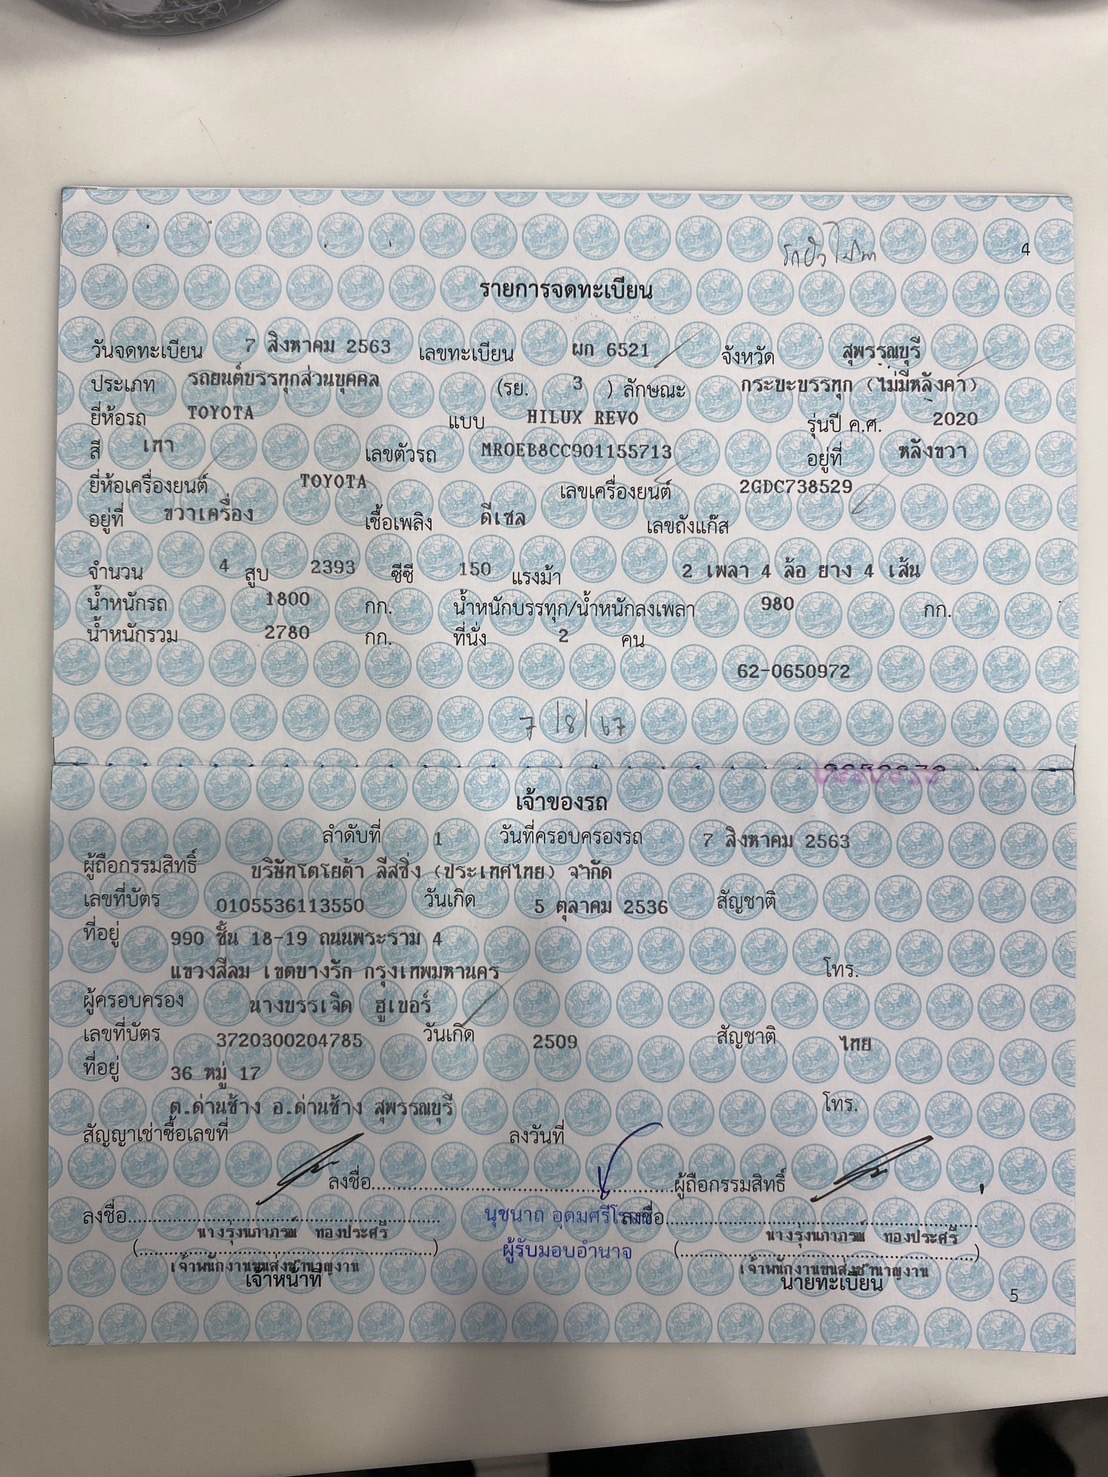 4
รายการจดทะเบียน
วันจดทะเบียน 7 สิงหาคม 2563 เลขทะเบียน ผก 6521 จังหวัด สุพรรณบุรี
ประเภท รถยนต์บรรทุกส่วนบุคคล (รย. 3 ) ลักษณะ กระบะบรรทุก (ไม่มีหลังคา)
ยี่ห้อรถ TOYOTA แบบ HILUX REVO รุ่นปี ค.ศ. 2020
สี เทา เลขตัวรถ MR0EB8CC901155713 อยู่ที่ หลังขวา
ยี่ห้อเครื่องยนต์ TOYOTA เลขเครื่องยนต์ 2GDC738529
อยู่ที่ ขวาเครื่อง เชื้อเพลิง ดีเซล เลขถังแก๊ส
จำนวน 4 สูบ 2393 ซีซี 150 แรงม้า 2 เพลา 4 ล้อ ยาง 4 เส้น
น้ำหนักรถ 1800 กก. น้ำหนักบรรทุก/น้ำหนักลงเพลา 980 กก.
น้ำหนักรวม 2780 กก. ที่นั่ง 2 คน
62-0650972
7/8/67
เจ้าของรถ
ลำดับที่ 1 วันที่ครอบครองรถ 7 สิงหาคม 2563
ผู้ถือกรรมสิทธิ์ บริษัทโตโยต้า ลีสซิ่ง (ประเทศไทย) จำกัด
เลขที่บัตร 0105536113550 วันเกิด 5 ตุลาคม 2536 สัญชาติ
ที่อยู่ 990 ชั้น 18-19 ถนนพระราม 4
แขวงสีลม เขตบางรัก กรุงเทพมหานคร โทร.
ผู้ครอบครอง นางบรรเจิด ฮูเบอร์
เลขที่บัตร 3720300204785 วันเกิด 2509 สัญชาติ ไทย
ที่อยู่ 36 หมู่ 17
ต.ด่านช้าง อ.ด่านช้าง สุพรรณบุรี โทร.
สัญญาเช่าซื้อเลขที่ ลงวันที่
ลงชื่อ ผู้ถือกรรมสิทธิ์
ลงชื่อ นุชนาถ ลงชื่อ
(นางรุ่งนภาภรณ์ ทองประศรี) ผู้รับมอบอำนาจ (นางรุ่งนภาภรณ์ ทองประศรี)
เจ้าพนักงานขนส่งชำนาญงาน เจ้าพนักงานขนส่งชำนาญงาน
เจ้าหน้าที่ นายทะเบียน
5